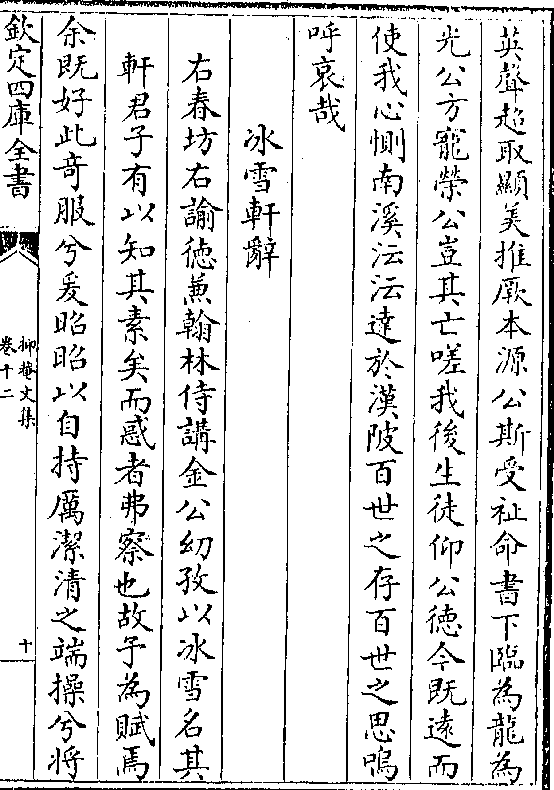 英聲超取顯美推厥本源公斯受祉命書下臨為龍為
光公方寵榮公豈其亡嗟我後生徒仰公徳今既逺而
使我心惻南溪沄沄達於漢陂百世之存百世之思嗚
呼哀哉
冰雪軒辭
右春坊右諭徳兼翰林侍講金公幼孜以冰雪名其
軒君子有以知其素矣而惑者弗察也故予為賦焉
余既好此竒服兮爰昭昭以自持厲潔清之端操兮將
欽定四庫全書
抑菴文集
卷十二
十